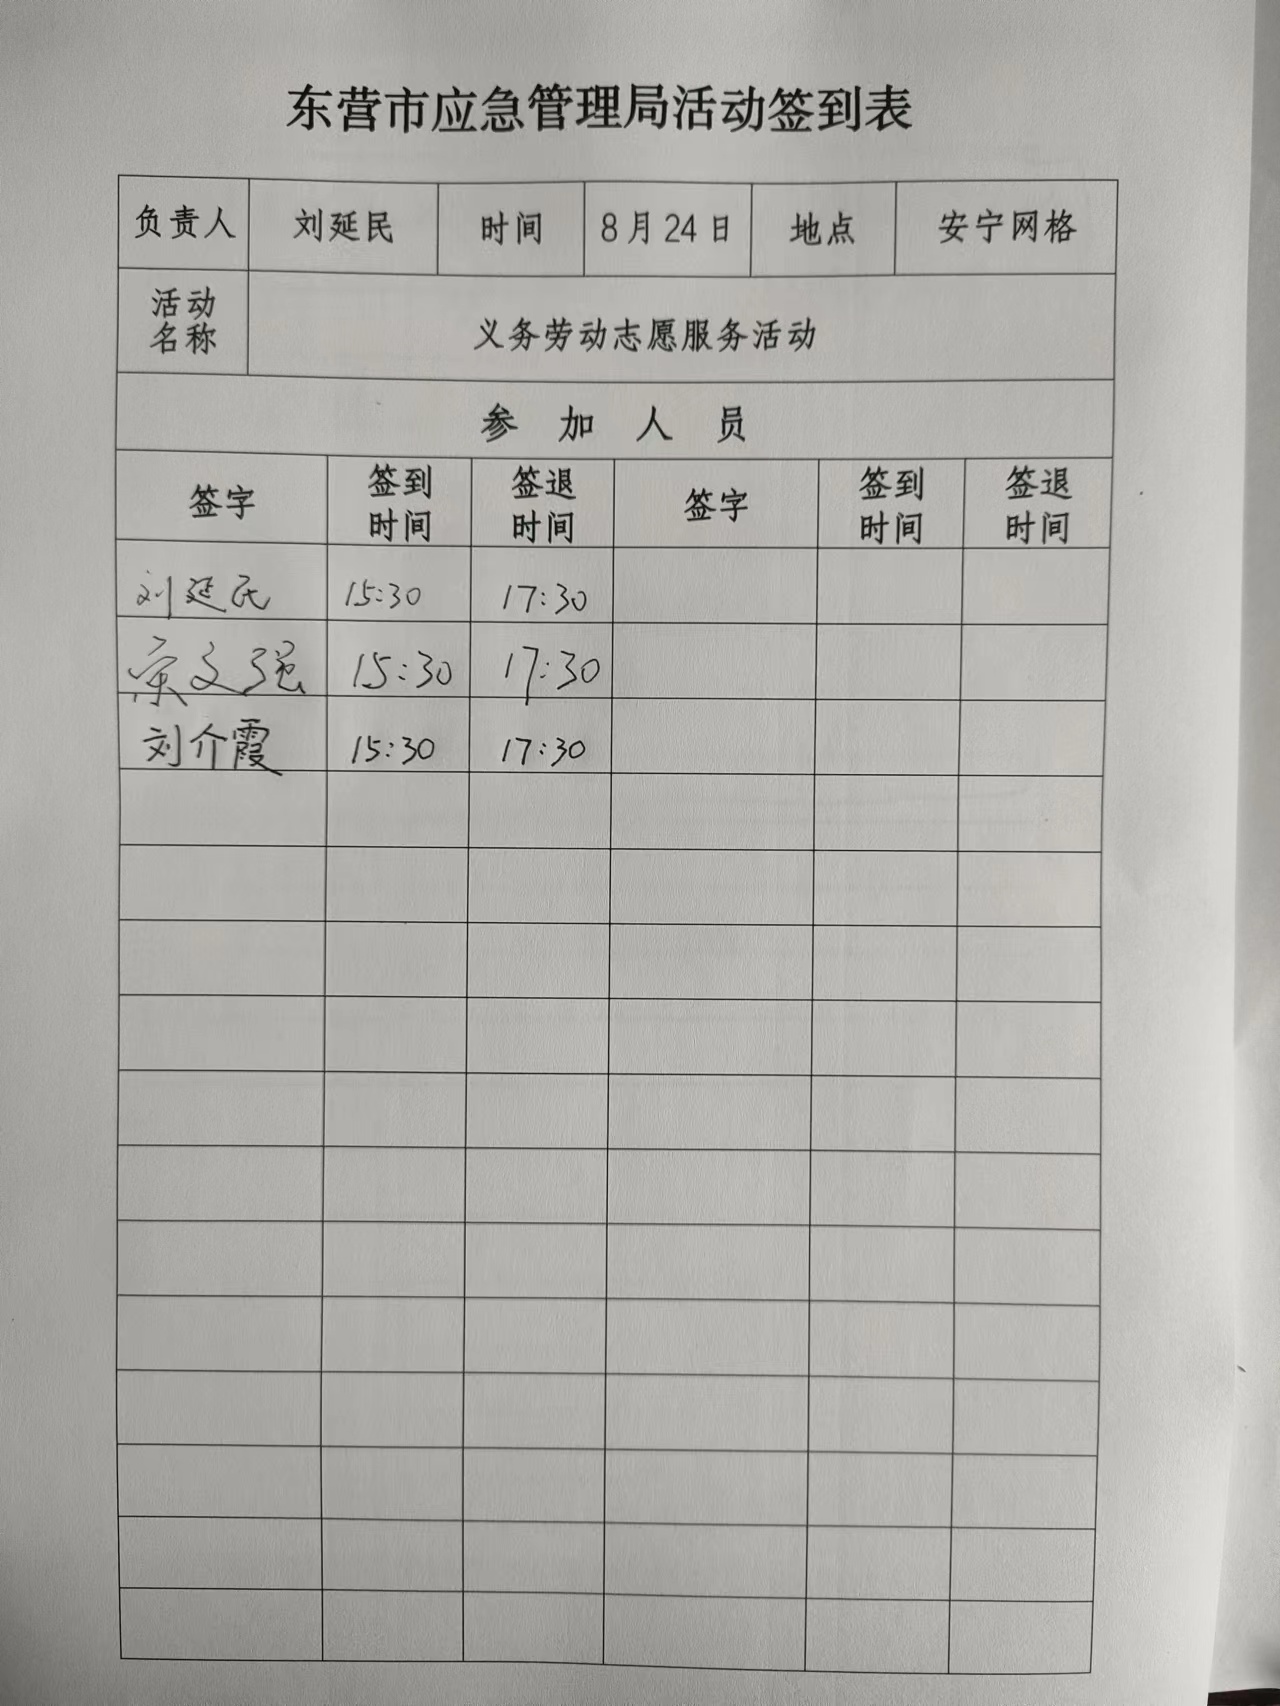 东营市应急管理局活动签到表
负责人 刘延民 时间 8月24日 地点 安宁网格
活动名称 义务劳动志愿服务活动
参加人员
签字 签到时间 签退时间 签字 签到时间 签退时间
刘延民 15:30 17:30
文强 15:30 17:30
刘介霞 15:30 17:30